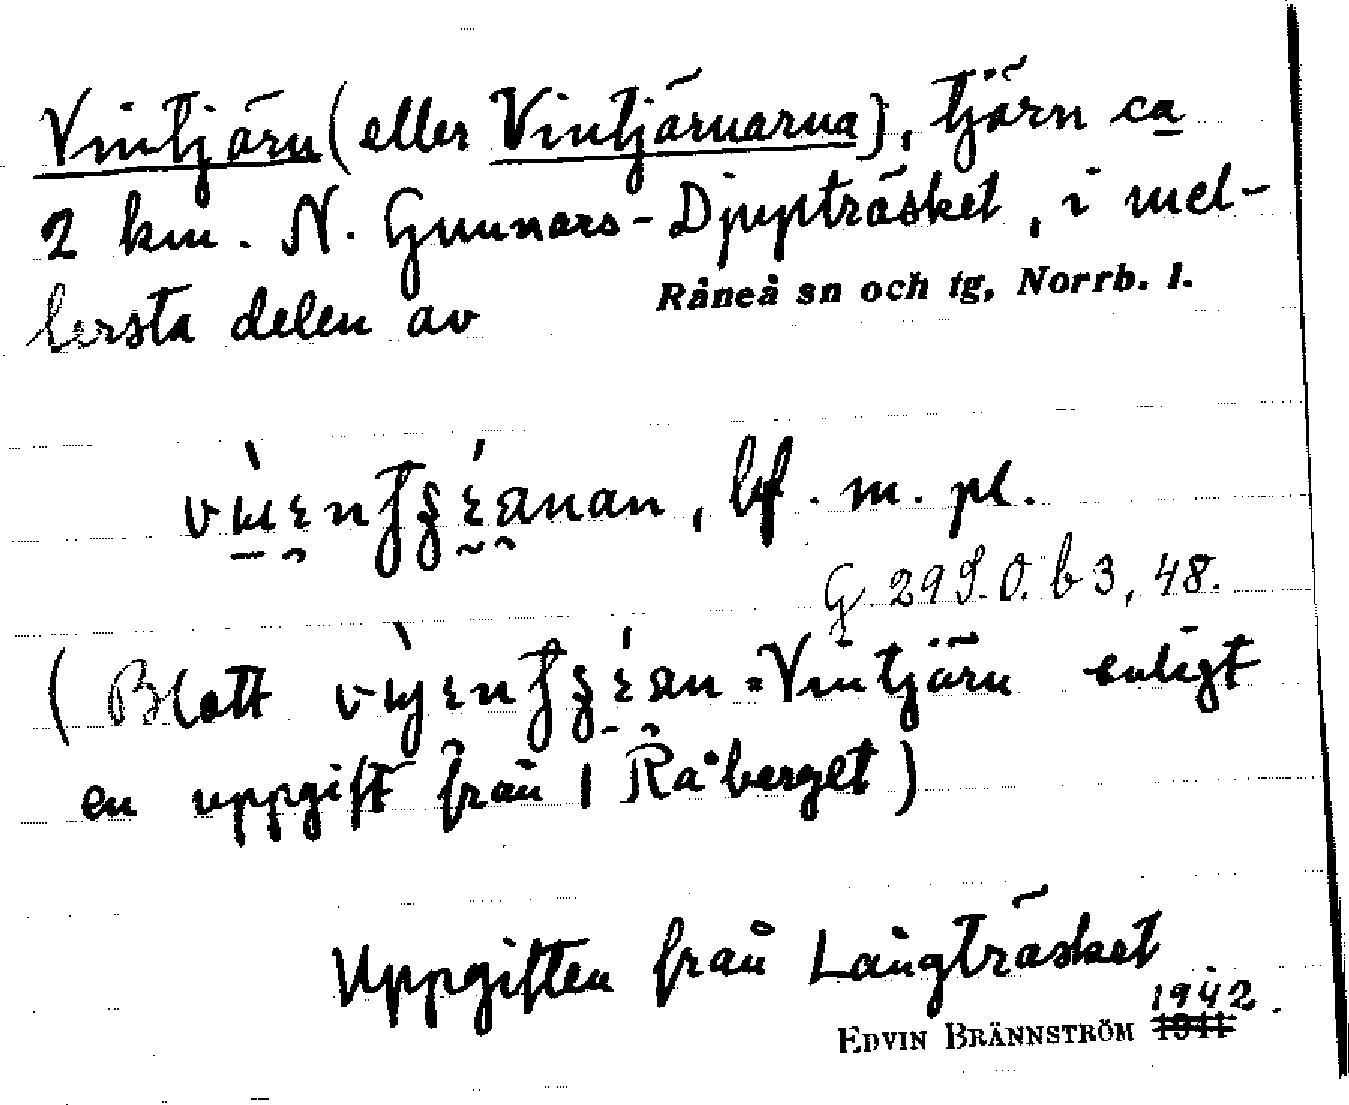 Vintjärn (eller Vintjärnarna), tjärn ca
2 km. N. Gunnars-Djupträsket, i mel-
lersta delen av Råneå sn och tg, Norrb. l.
, bf. m. pl.
G 29 S.O. b 3, 48.
(Blott = Vintjärn enligt
en uppgift från 1 Råberget)
Uppgiften från Långträsket
EDVIN BRÄNNSTRÖM 1941 1942.